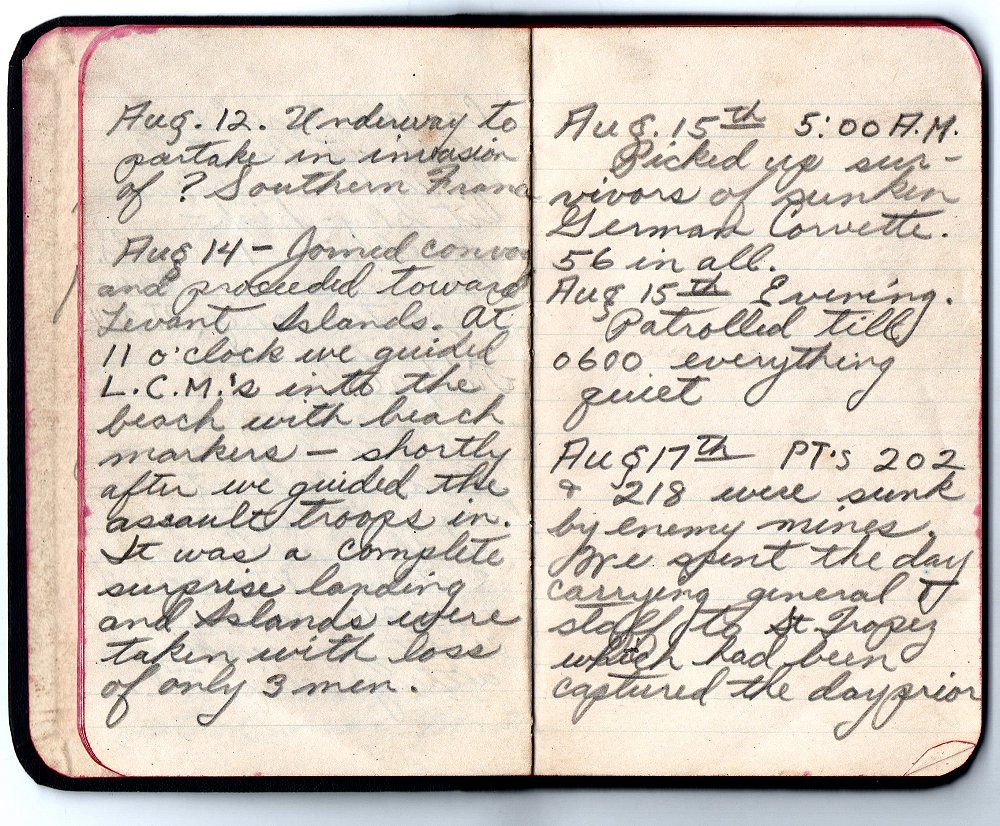 Aug. 12. Underway to
partake in invasion
of ? Southern Franc
Aug 14 – Joined convoy
and proceeded toward
Levant Islands. At
11 o'clock we guided
L.C.M.'s into the
beach with beach
markers – shortly
after we guided the
assault troops in.
It was a complete
surprise landing
and Islands were
taken with loss
of only 3 men.
Aug. 15th 5:00 A.M.
Picked up sur-
vivors of sunken
German Corvette.
56 in all.
Aug 15th Evening.
Patrolled till
0600 everything
quiet
Aug 17th PT's 202
& 218 were sunk
by enemy mines.
We spent the day
carrying general
staff to St Tropez
which had been
captured the day prior